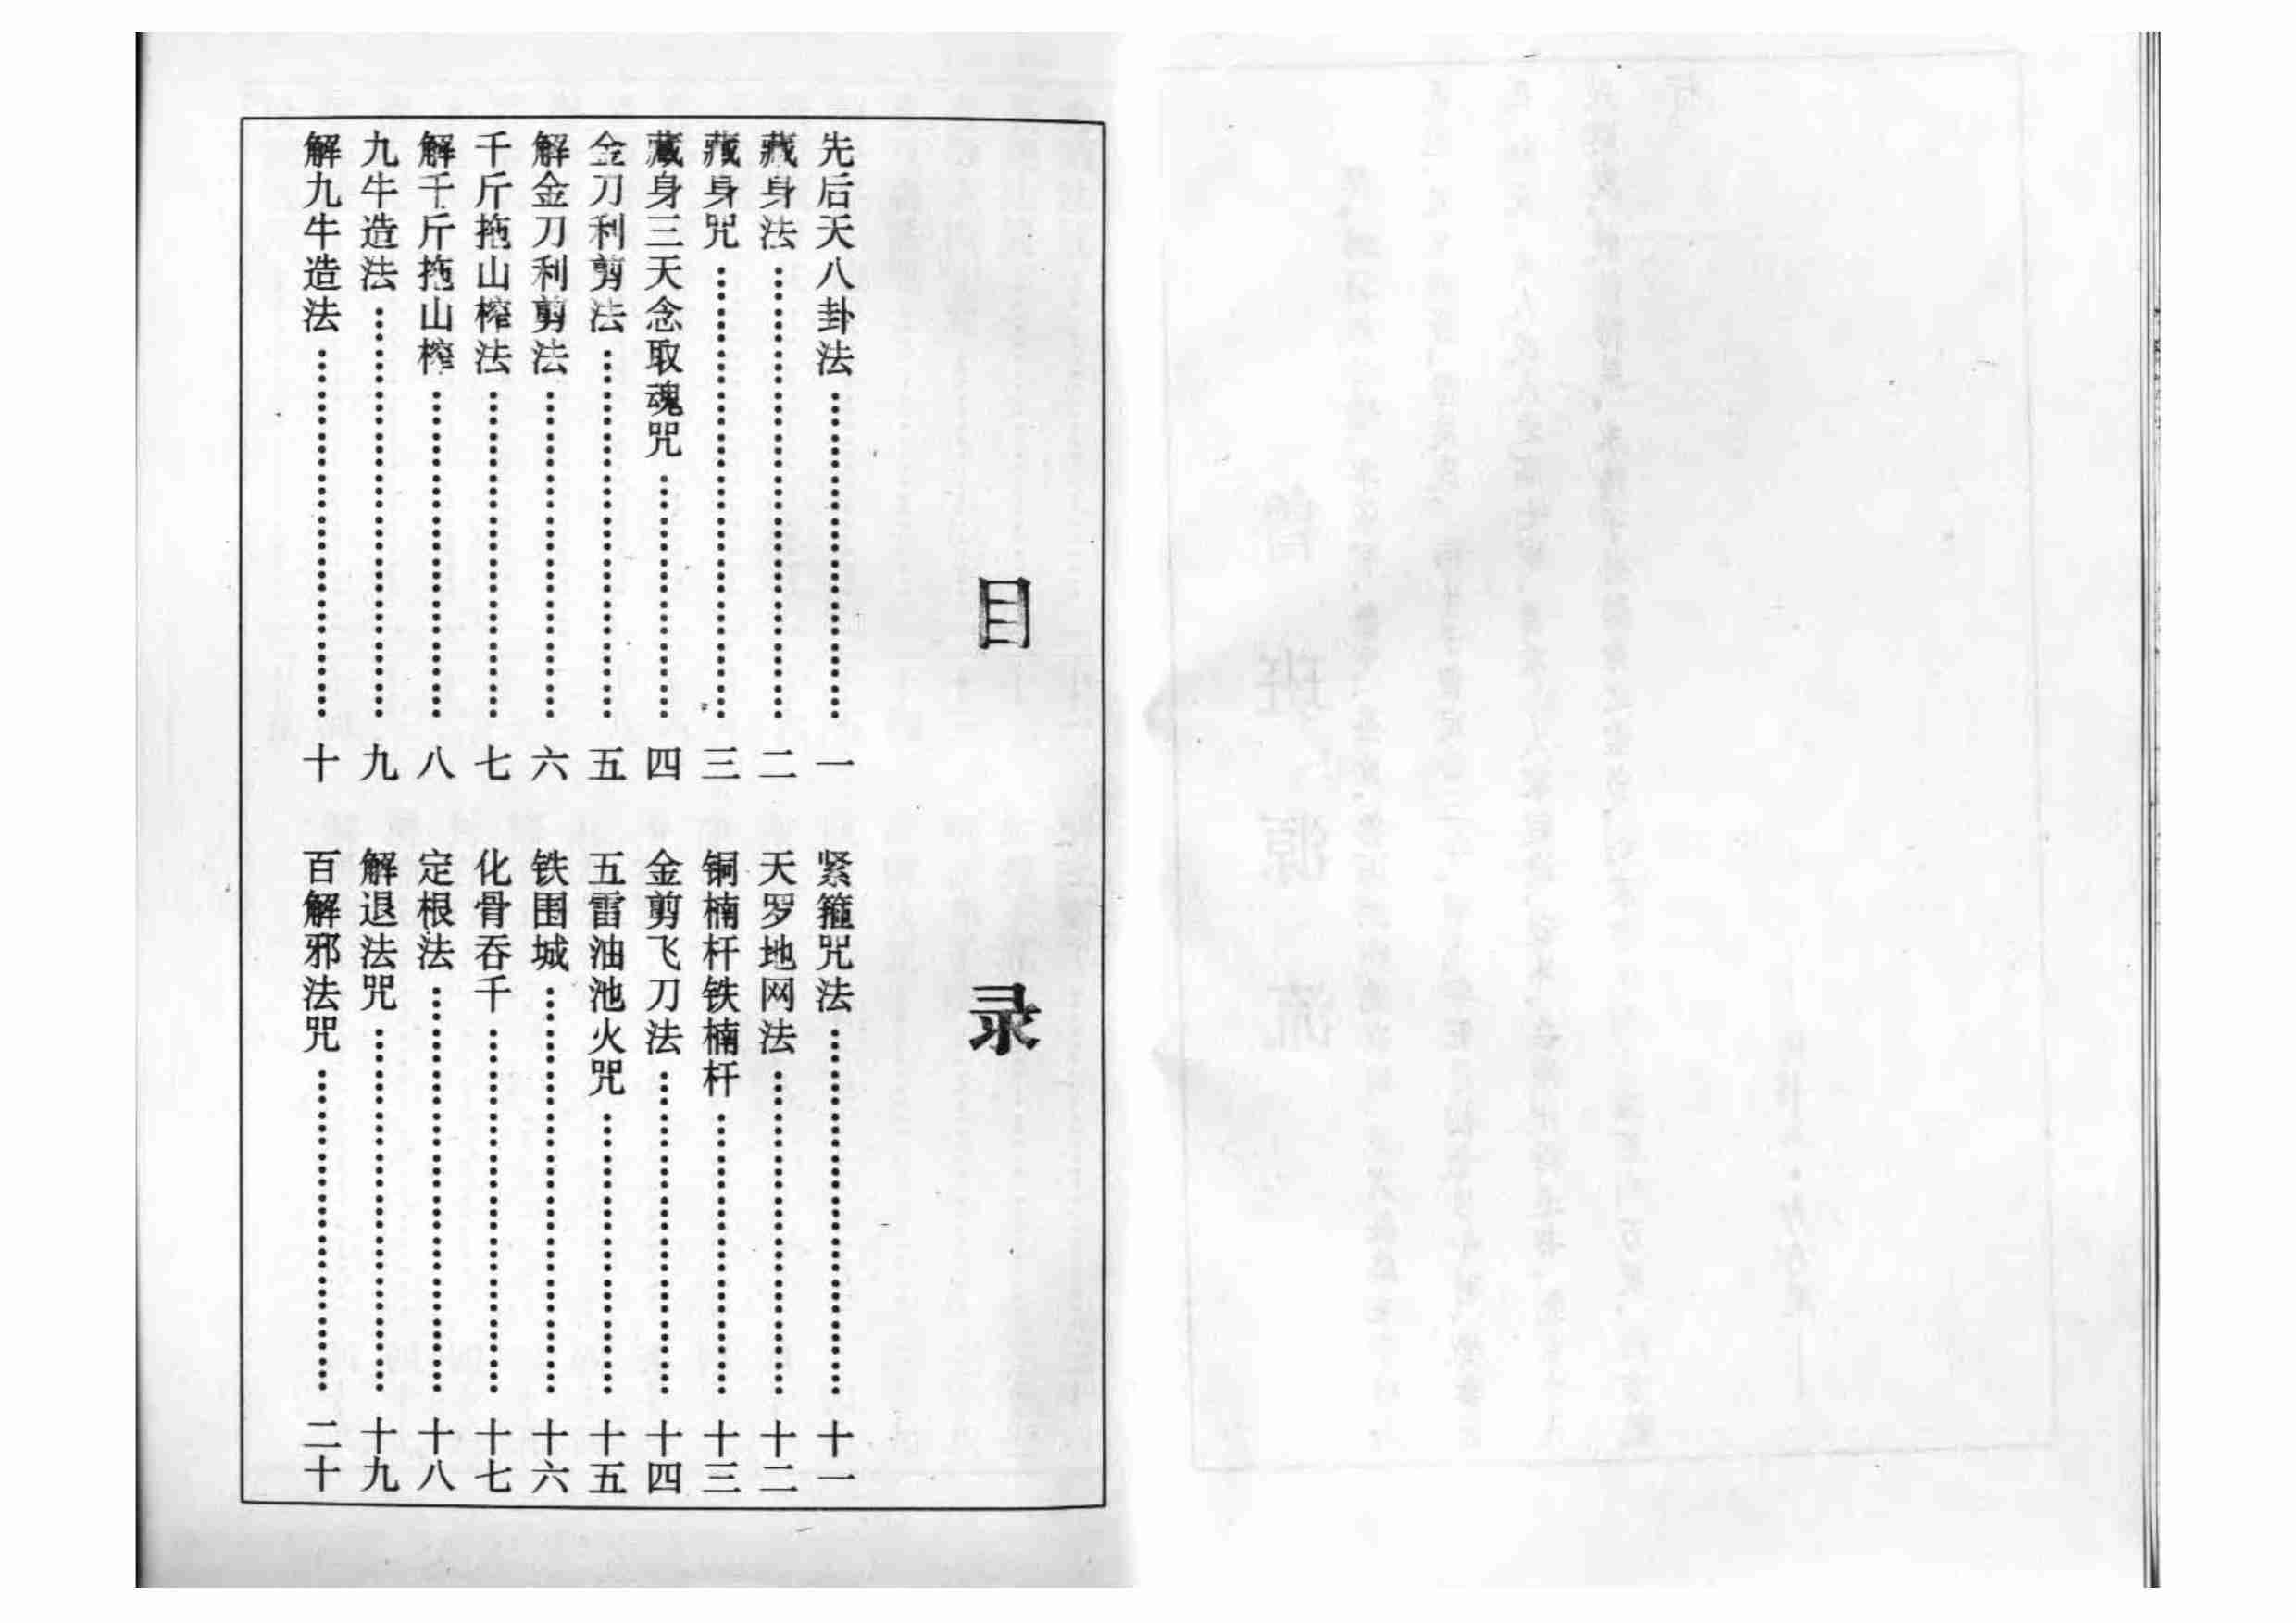 目录
先后天八卦法……一
藏身法……二
藏身咒……三
藏身三天念取魂咒……四
金刀利剪法……五
解金刀利剪法……六
千斤拖山榨法……七
解千斤拖山榨……八
九牛造法……九
解九牛造法……十
紧箍咒法……十一
天罗地网法……十二
铜楠杆铁楠杆……十三
金剪飞刀法……十四
五雷油池火咒……十五
铁围城……十六
化骨吞千……十七
定根法……十八
解退法咒……十九
百解邪法咒……二十